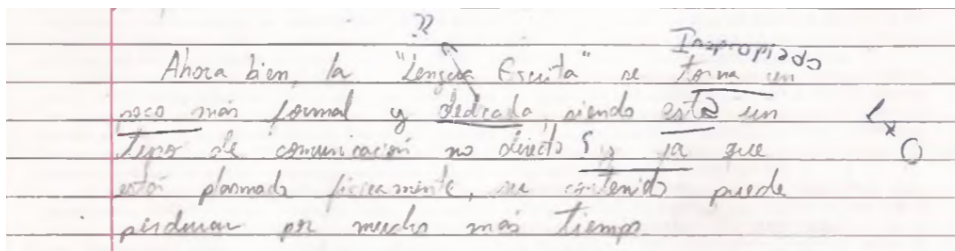 ??
Inapropiado
Ahora bien, la "Lengua Escrita" se torna un
poco más formal y dedicada, siendo esta un
tipo de comunicación no directo y ya que
está plasmado físicamente, su contenido puede
perdurar por mucho más tiempo